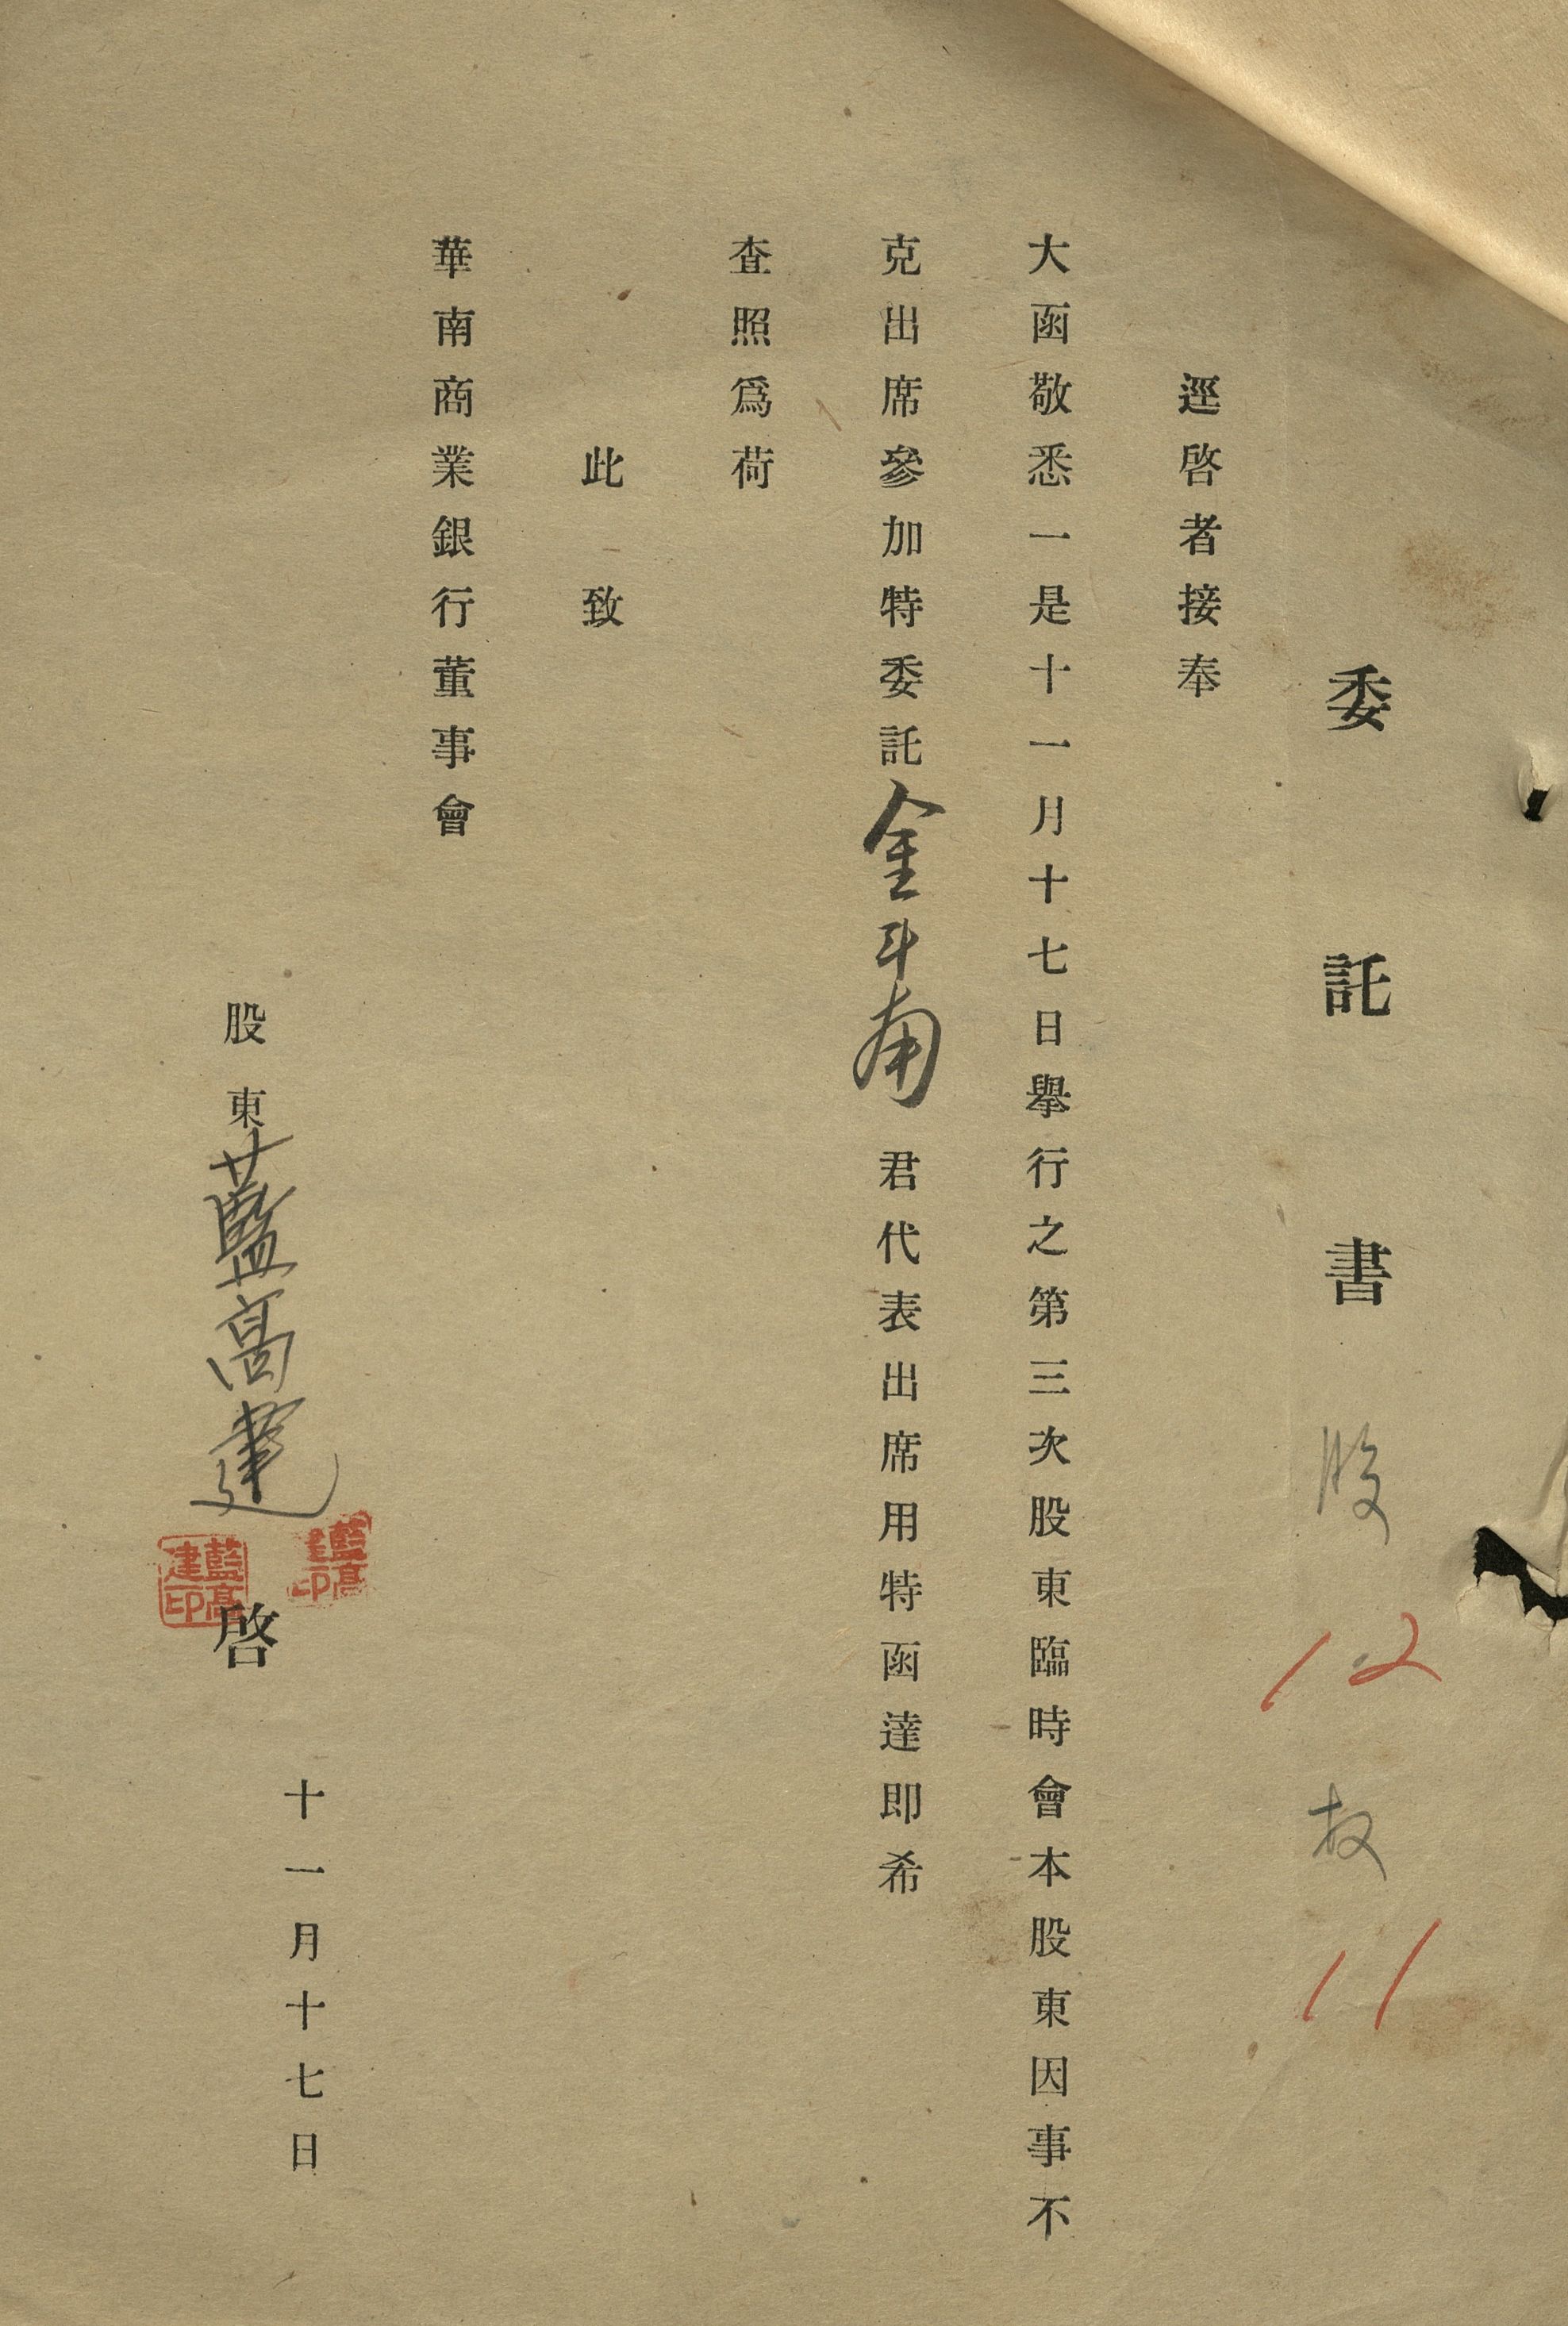 委託書 股 12 权 11
逕啓者接奉
大函敬悉一是十一月十七日舉行之第三次股東臨時會本股東因事不
克出席參加特委託金斗南君代表出席用特函達即希
查照爲荷
此致
華南商業銀行董事會
十一月十七日
股東藍高建啓
藍高建印
藍高建印